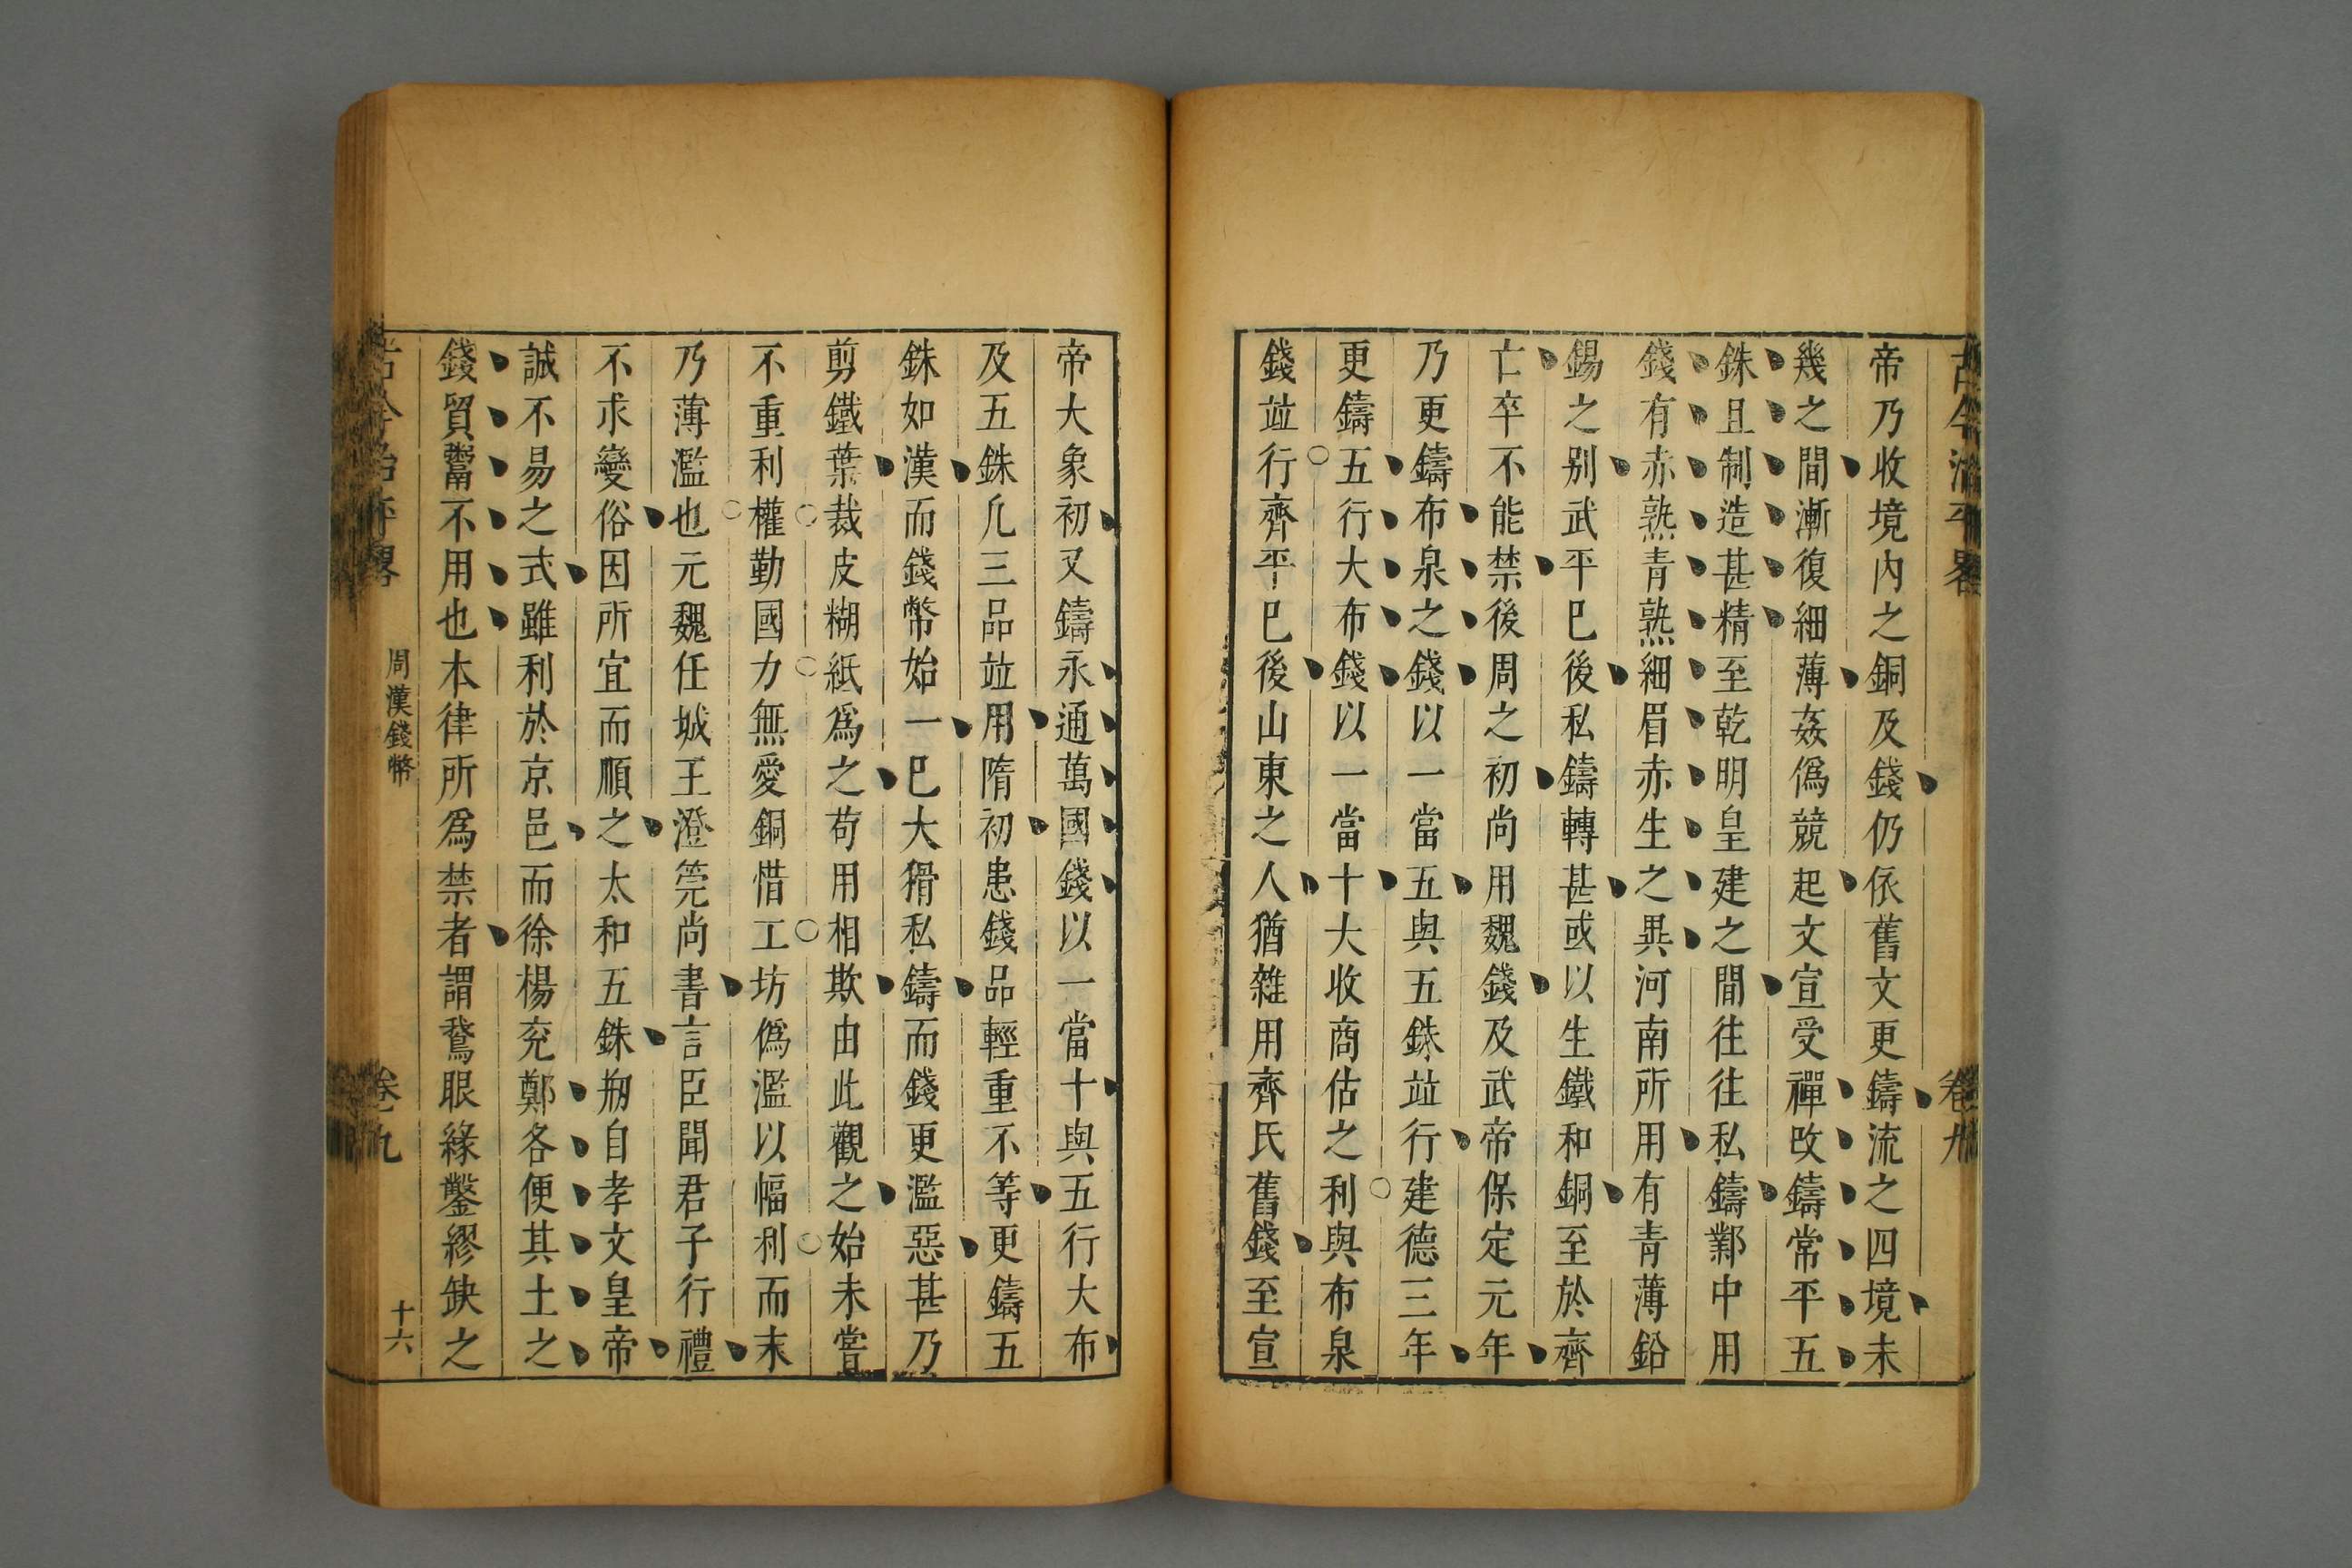 古今治平畧 卷九
帝乃收境內之銅及錢仍依舊文更鑄流之四境未
幾之間漸復細薄姦僞競起文宣受禪改鑄常平五
銖且制造甚精至乾明皇建之間往往私鑄鄴中用
錢有赤熟青熟細眉赤生之異河南所用有青薄鉛
錫之别武平巳後私鑄轉甚或以生鐵和銅至於齊
亡卒不能禁後周之初尚用魏錢及武帝保定元年
乃更鑄布泉之錢以一當五與五銖竝行建德三年
更鑄五行大布錢以一當十大收商估之利與布泉
錢竝行齊平巳後山東之人猶雜用齊氏舊錢至宣
帝大象初又鑄永通萬國錢以一當十與五行大布
及五銖凢三品竝用隋初患錢品輕重不等更鑄五
銖如漢而錢幣始一巳大猾私鑄而錢更濫惡甚乃
剪鐵葉裁皮糊紙爲之苟用相欺由此觀之始未嘗
不重利權勤國力無愛銅惜工坊僞濫以幅利而末
乃薄濫也元魏任城王澄筦尚書言臣聞君子行禮
不求變俗因所宜而順之太和五銖刱自孝文皇帝
誠不易之式雖利於京邑而徐楊兖鄭各便其土之
錢貿鬻不用也本律所爲禁者謂鵞眼緣鑿繆缺之
古今治平畧 周漢錢幣 卷九 十六